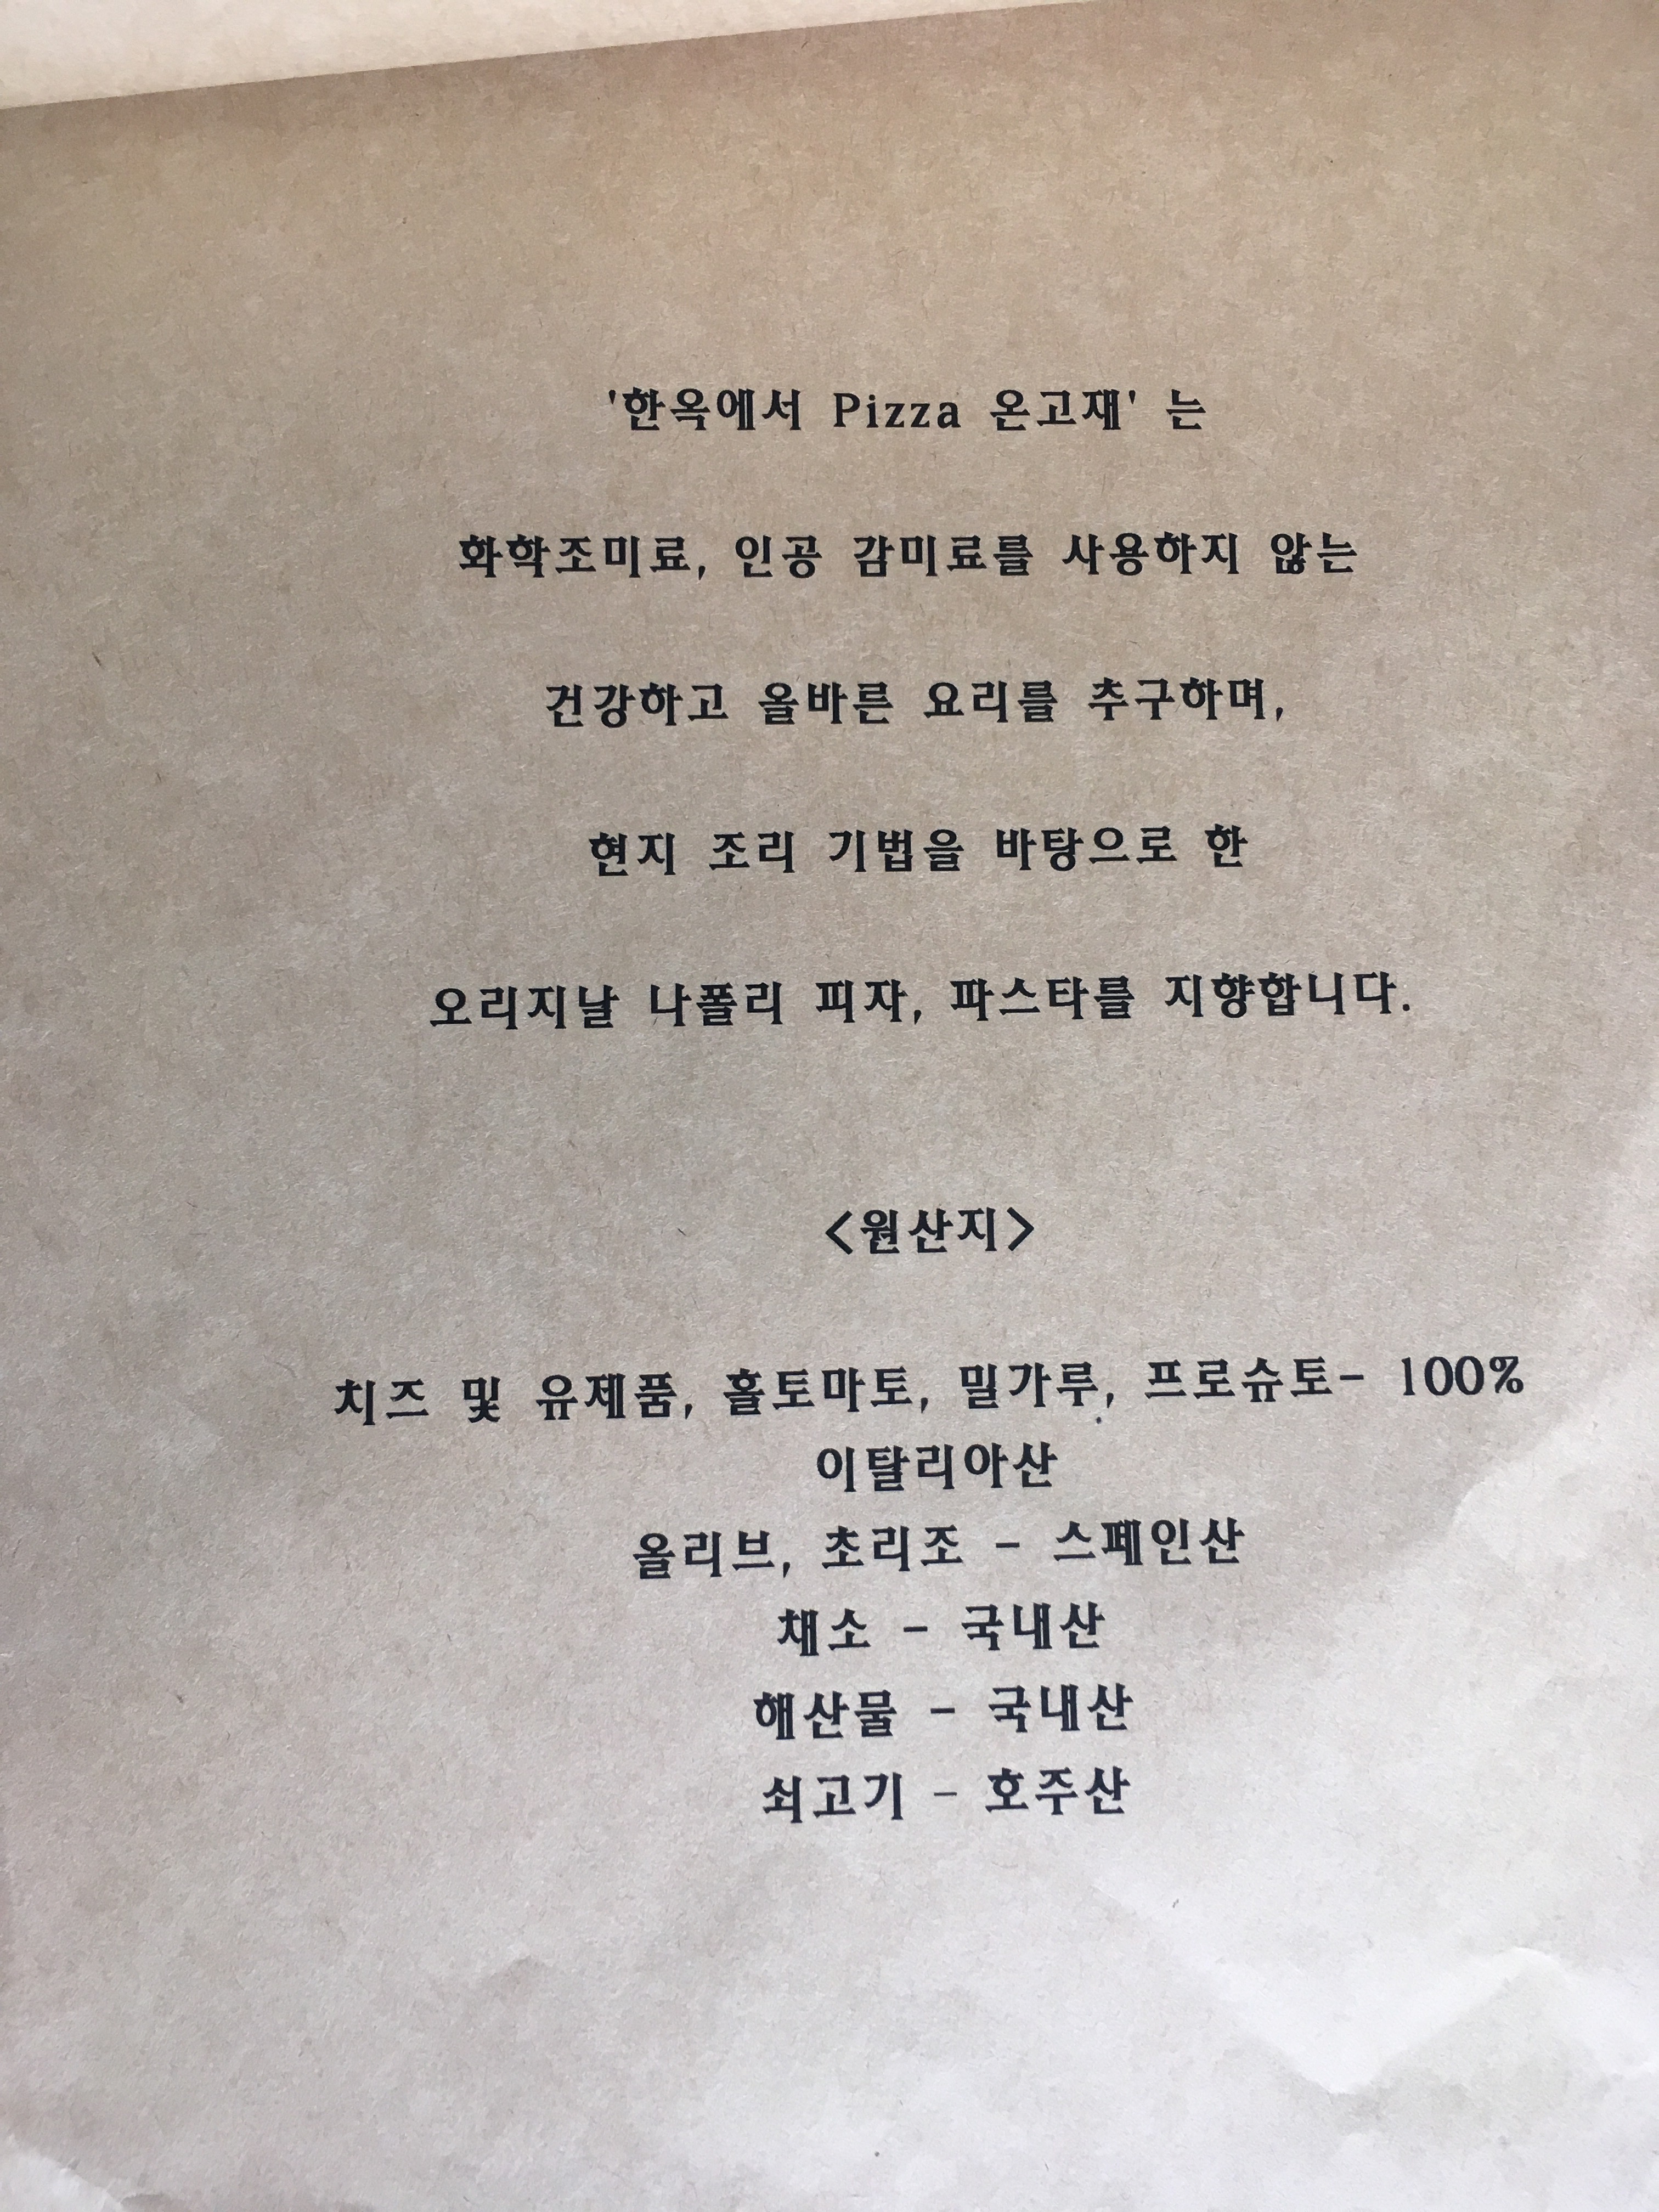 '한옥에서 Pizza 온고재' 는
화학조미료, 인공 감미료를 사용하지 않는
건강하고 올바른 요리를 추구하며,
현지 조리 기법을 바탕으로 한
오리지날 나폴리 피자, 파스타를 지향합니다.
<원산지>
치즈 및 유제품, 홀토마토, 밀가루, 프로슈토- 100%
이탈리아산
올리브, 초리조 - 스페인산
채소 - 국내산
해산물 - 국내산
쇠고기 - 호주산